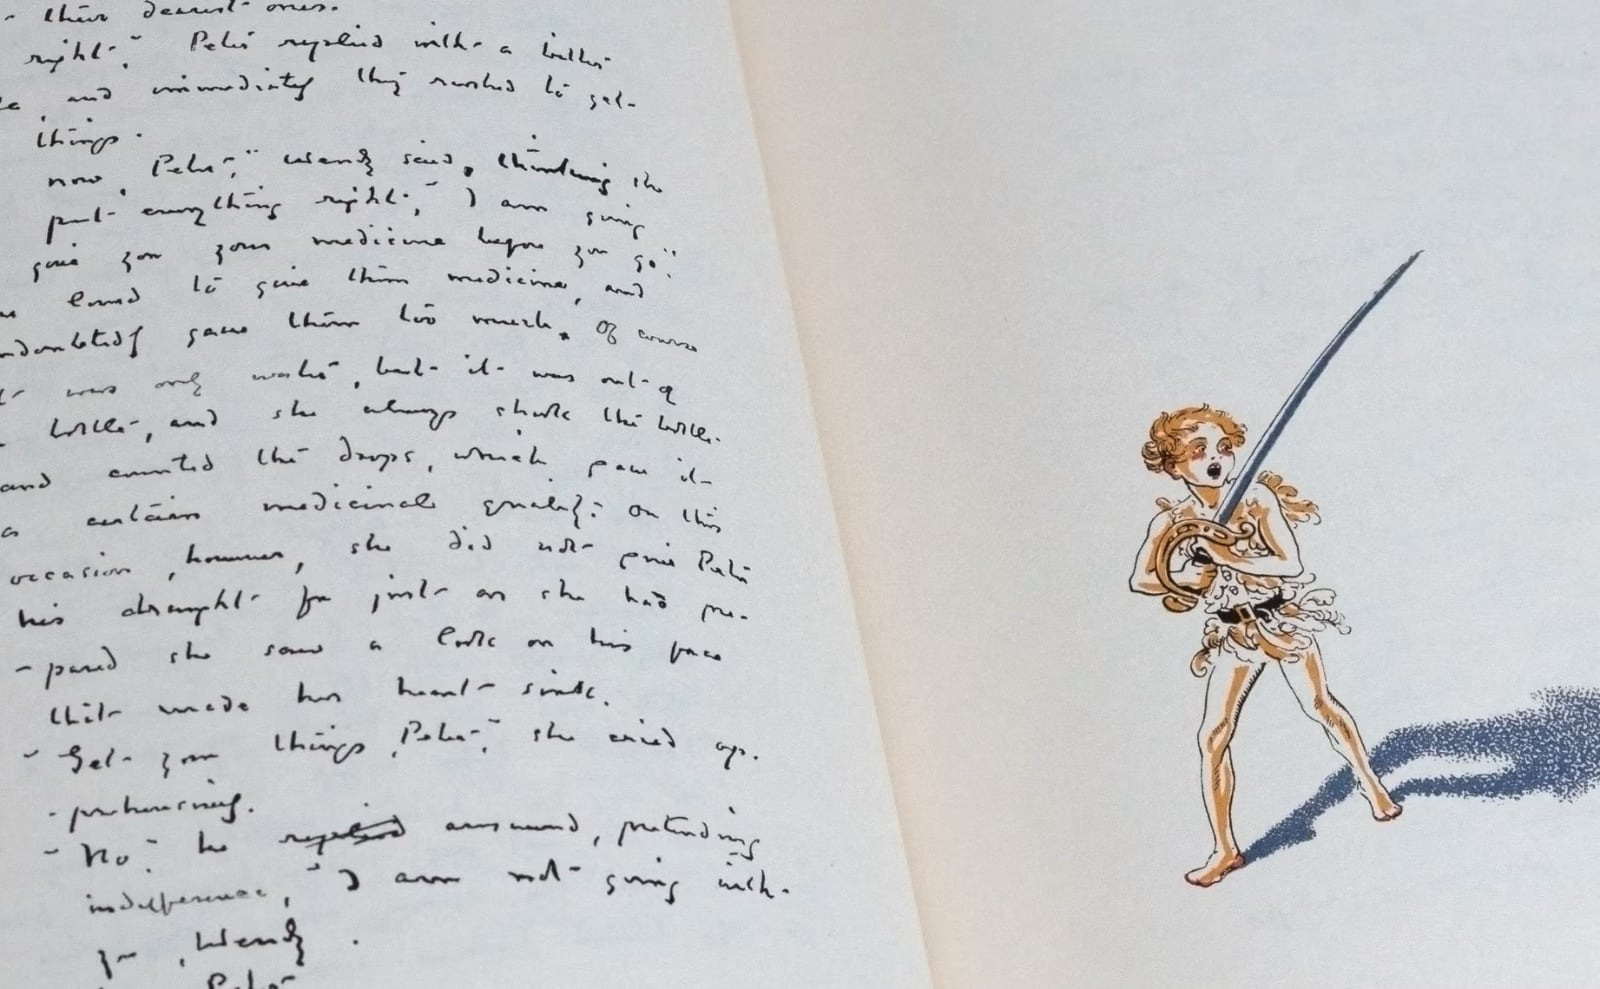 - their dearest ones.
right," Peter replied with a bitter
and immediately they rushed to get
things.
now, Peter," Wendy said, thinking she
put everything right, "I am going
give you your medicine before you go."
loved to give them medicine, and
undoubtedly gave them too much. Of course
it was only water, but it was out of
a bottle, and she always shook the bottle
and counted the drops, which gave it
a certain medicinal quality. On this
occasion, however, she did not give Peter
his draught for just as she had pre-
-pared she saw a look on his face
that made her heart sink.
"Get your things, Peter," she cried ap.
-prehensively.
"No," he replied answered, pretending
indifference, "I am not going with
you, Wendy.
Peter